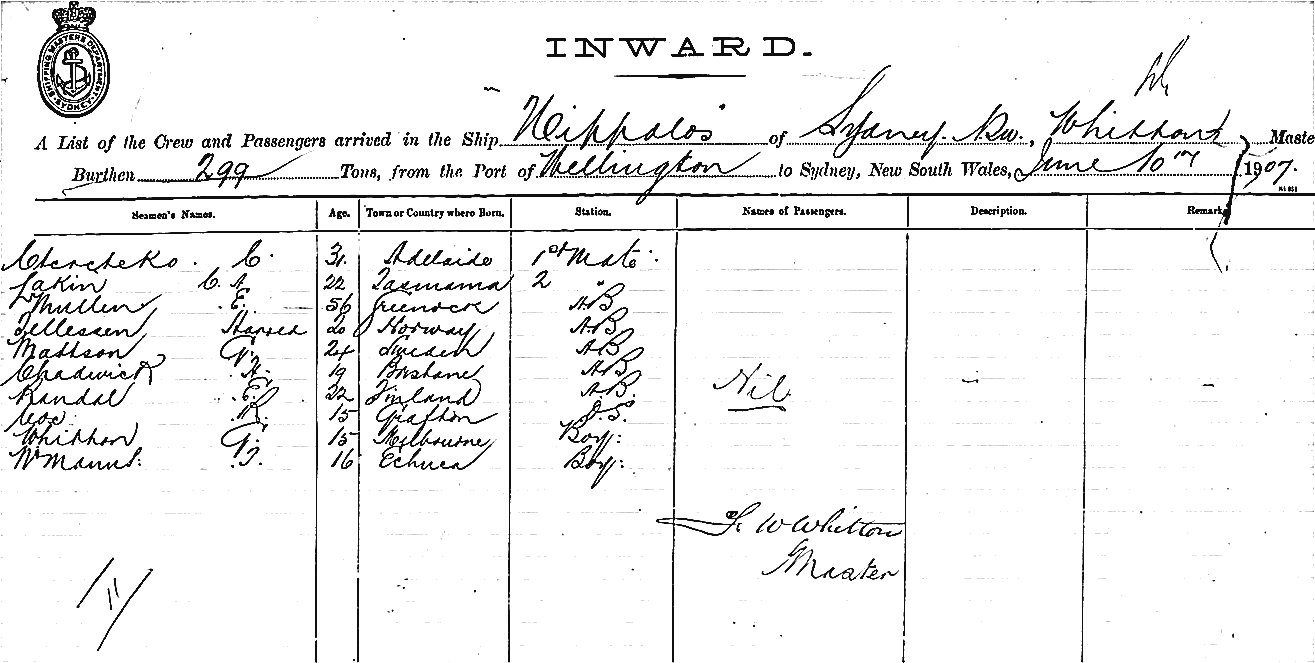 SHIPPING MASTERS DEPARTMENT SYDNEY
INWARD.
A List of the Crew and Passengers arrived in the Ship Hippalos of Sydney. Whitton Maste
Burthen 299 Tons, from the Port of Wellington to Sydney, New South Wales, June 10th 1907.
Seamen's Names. Age. Town or Country where Born. Station. Names of Passengers. Description. Remark
C. 31 Adelaide 1st Mate.
Lakin C. A 22 Tasmania 2 "
Mullen E. 56 Greenock AB
Tellessen Harold 20 Norway AB
Mattson G. 24 Sweden AB
Chadwick H. 19 Brisbane AB
Randal E. 22 Finland A.B. Nil – –
Cox R. 15 Grafton O.S.
Whitton G. 15 Melbourne Boy.
J. 16 Echuca Boy.
W Whitton
Master
11